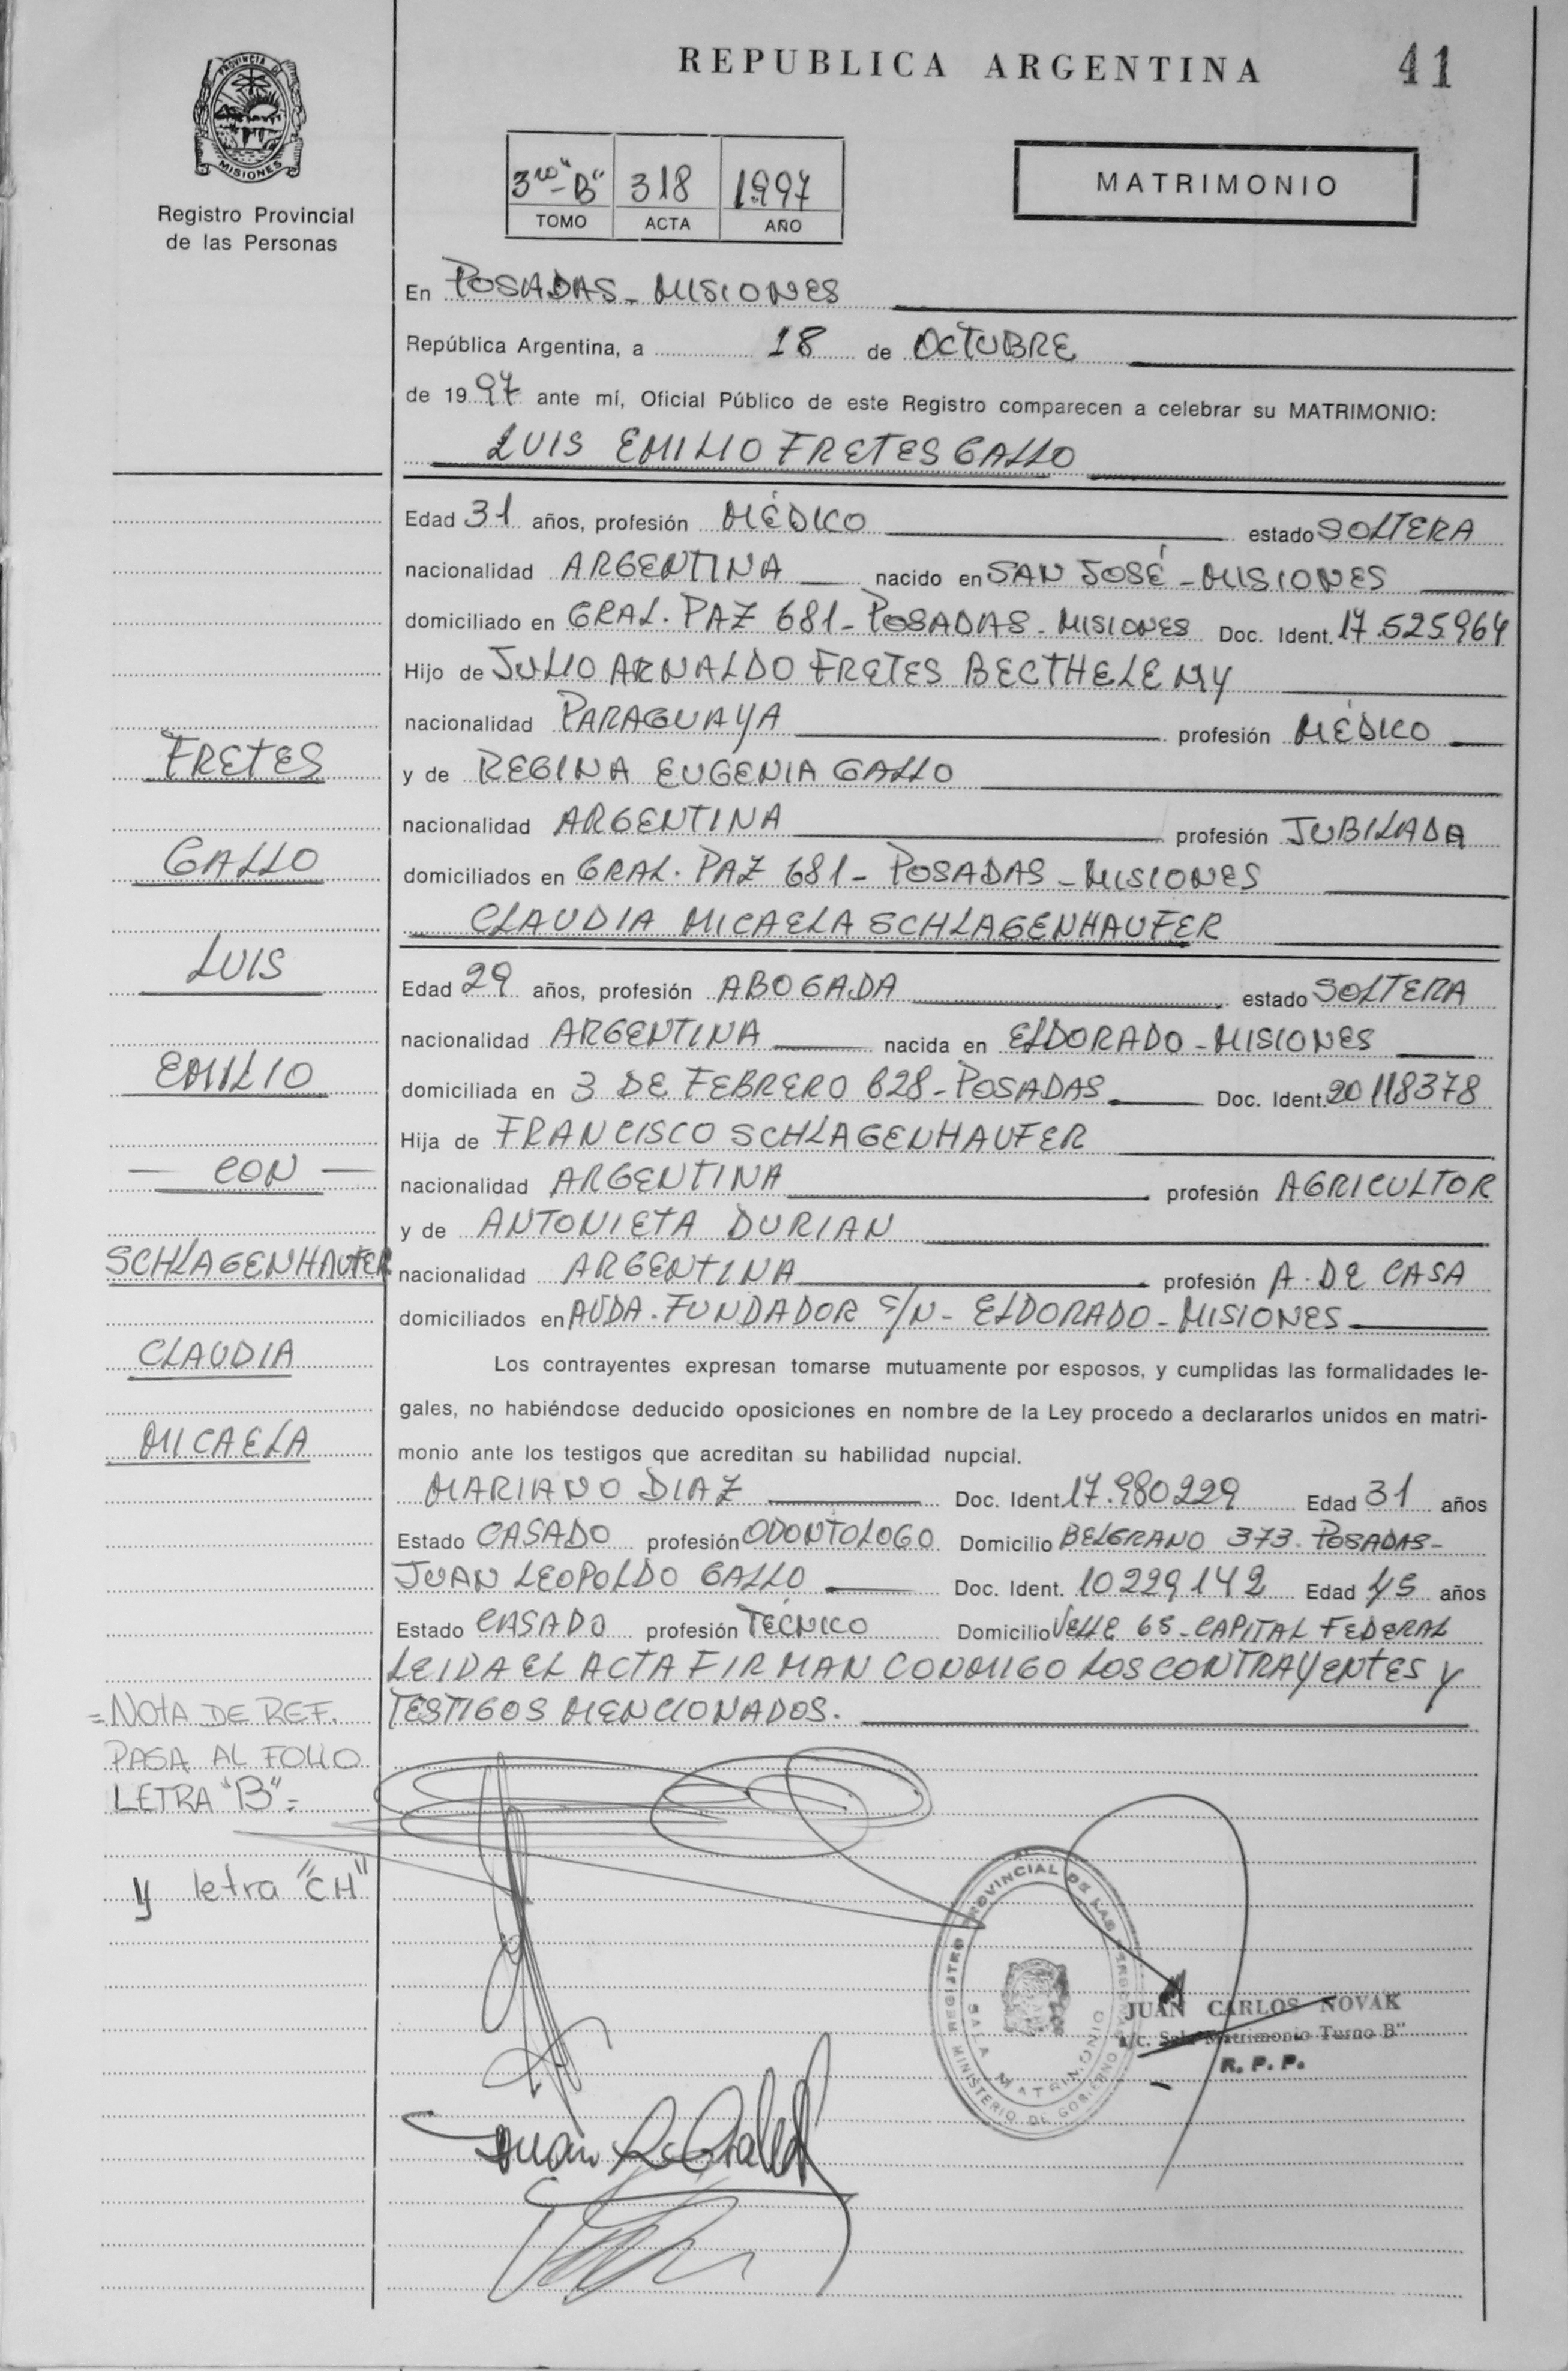 REPUBLICA ARGENTINA 41
PROVINCIA DE
MISIONES
Registro Provincial
de las Personas
3ro "B" 318 1997
TOMO ACTA AÑO
MATRIMONIO
En POSADAS - MISIONES
República Argentina, a 18 de OCTUBRE
de 1997 ante mí, Oficial Público de este Registro comparecen a celebrar su MATRIMONIO:
LUIS EMILIO FRETES GALLO
Edad 31 años, profesión MÉDICO estado SOLTERA
nacionalidad ARGENTINA nacido en SAN JOSÉ - MISIONES
domiciliado en GRAL. PAZ 681 - POSADAS - MISIONES Doc. Ident. 17.525.964
Hijo de JULIO ARNALDO FRETES BECTHELEMY
nacionalidad PARAGUAYA profesión MÉDICO
y de REGINA EUGENIA GALLO
nacionalidad ARGENTINA profesión JUBILADA
domiciliados en GRAL. PAZ 681 - POSADAS - MISIONES
CLAUDIA MICAELA SCHLAGENHAUFER
Edad 29 años, profesión ABOGADA estado SOLTERA
nacionalidad ARGENTINA nacida en ELDORADO - MISIONES
domiciliada en 3 DE FEBRERO 628 - POSADAS Doc. Ident. 20118378
Hija de FRANCISCO SCHLAGENHAUFER
nacionalidad ARGENTINA profesión AGRICULTOR
y de ANTONIETA DURIAN
nacionalidad ARGENTINA profesión A. DE CASA
domiciliados en AVDA. FUNDADOR S/N - ELDORADO - MISIONES
Los contrayentes expresan tomarse mutuamente por esposos, y cumplidas las formalidades le-
gales, no habiéndose deducido oposiciones en nombre de la Ley procedo a declararlos unidos en matri-
monio ante los testigos que acreditan su habilidad nupcial.
MARIANO DIAZ Doc. Ident. 17.980229 Edad 31 años
Estado CASADO profesión ODONTOLOGO Domicilio BELGRANO 373. POSADAS-
JUAN LEOPOLDO GALLO Doc. Ident. 10229142 Edad 45 años
Estado CASADO profesión TÉCNICO Domicilio VELLE 65 - CAPITAL FEDERAL
LEIDA EL ACTA FIRMAN CONMIGO LOS CONTRAYENTES Y
TESTIGOS MENCIONADOS.
FRETES
GALLO
LUIS
EMILIO
— CON —
SCHLAGENHAUFER
CLAUDIA
MICAELA
=NOTA DE REF.
PASA AL FOLIO
LETRA "B"=
y letra "CH"
REGISTRO PROVINCIAL DE LAS PERSONAS
MINISTERIO DE GOBIERNO
SALA MATRIMONIO
JUAN CARLOS NOVAK
a/c. Sala Matrimonio Turno B"
R. P. P.